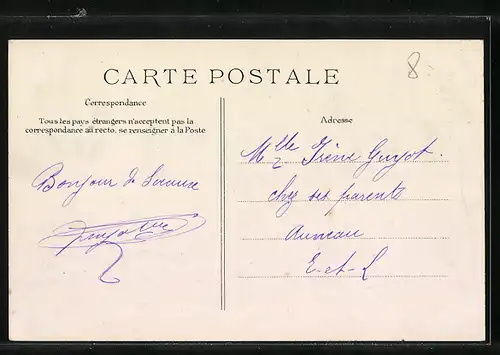 8
CARTE POSTALE
Correspondance
Tous les pays étrangers n'acceptent pas la
correspondance au recto, se renseigner à la Poste
Adresse
Bonjour de
Mlle Irène Guyot.
chez ses parents
Auneau
E-et-L